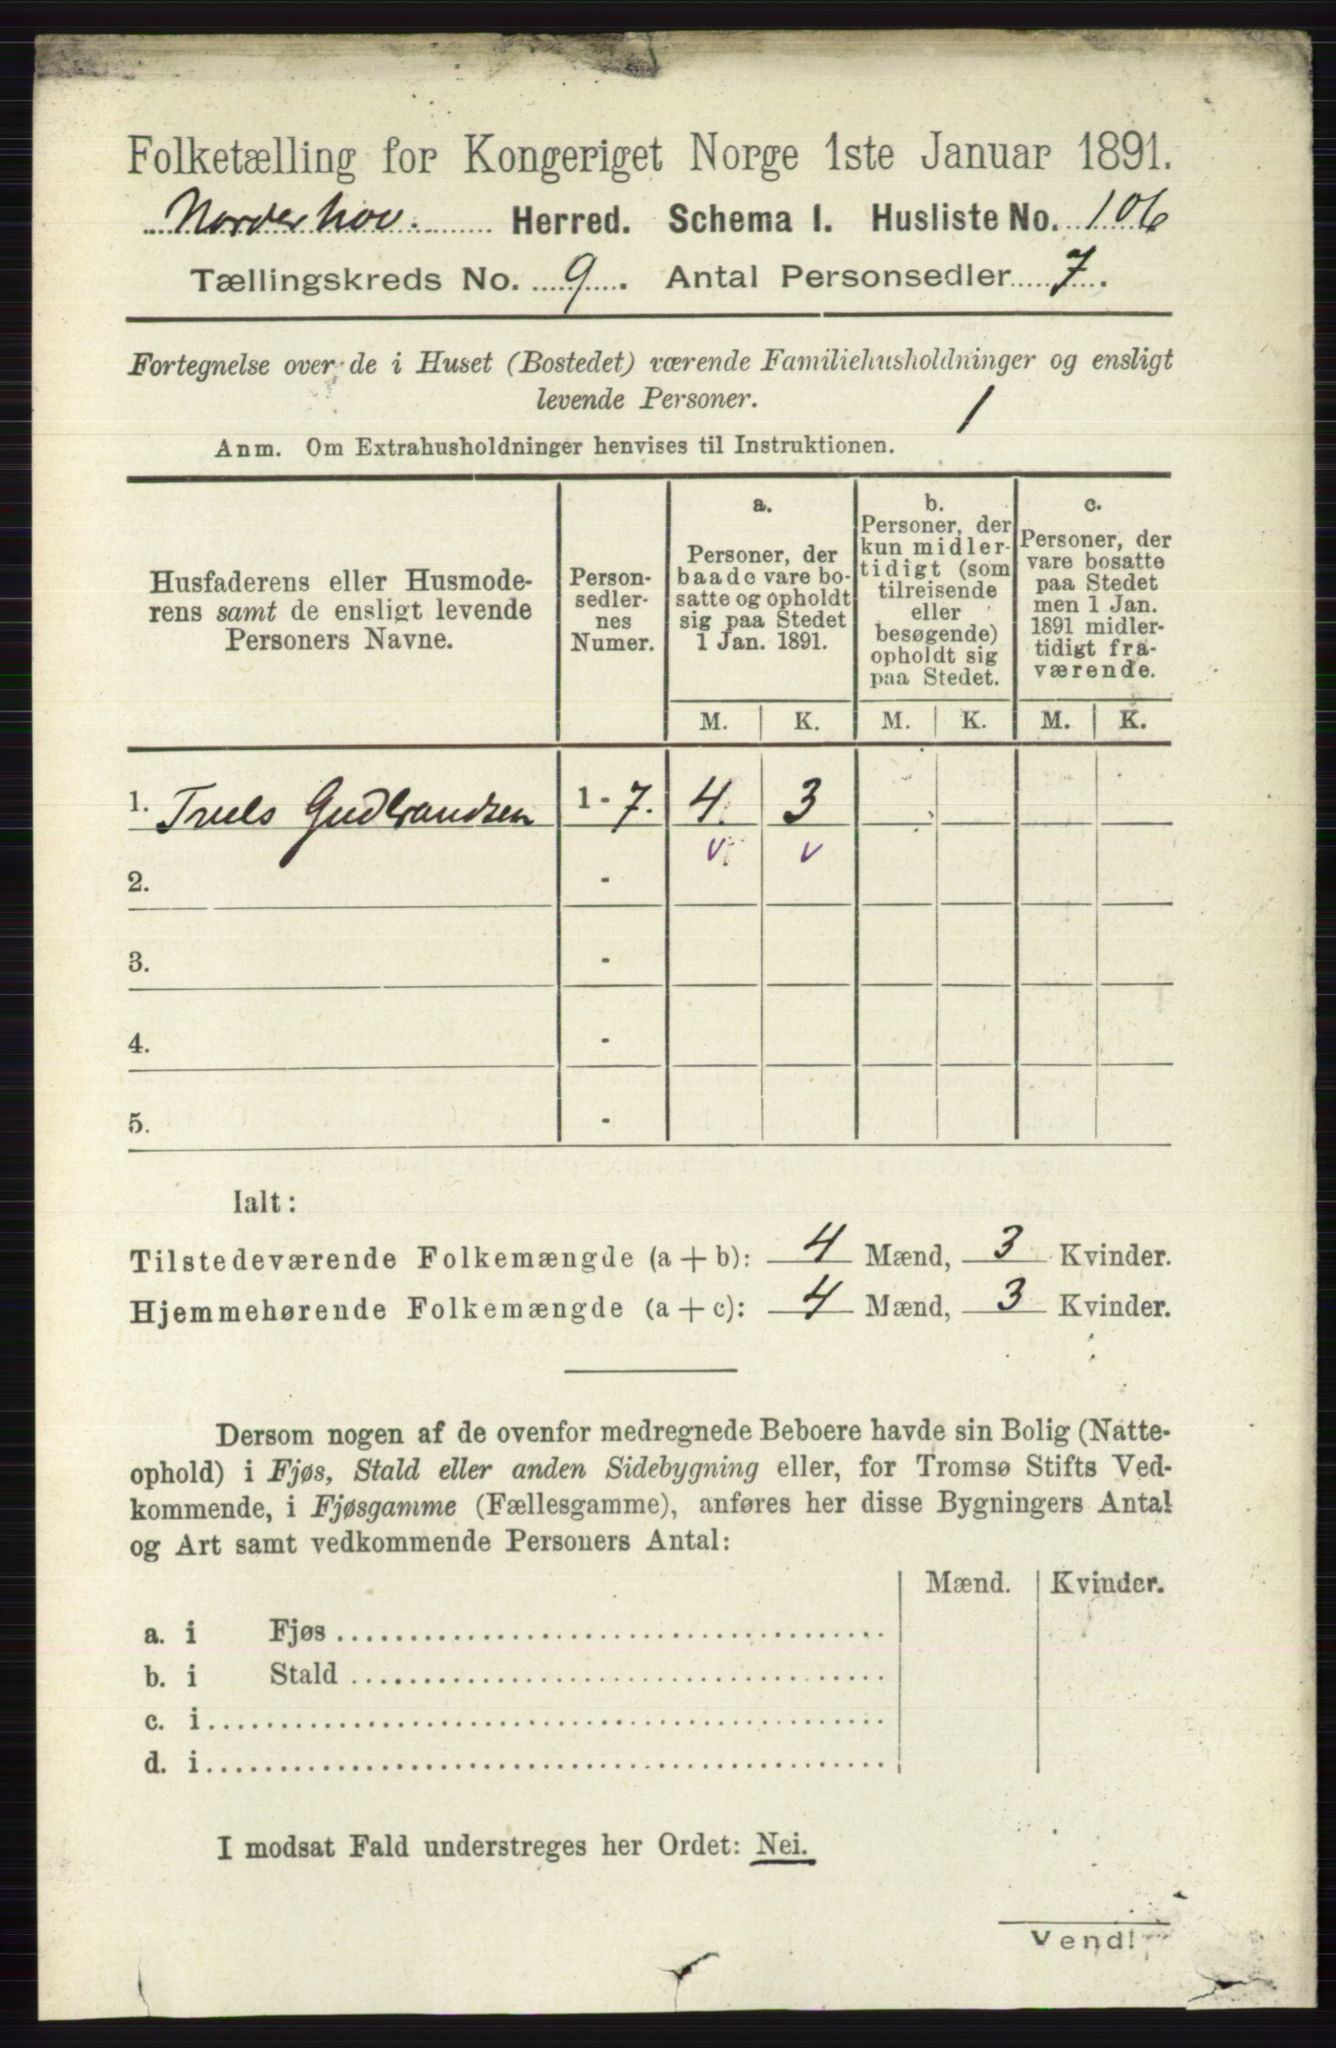 Folketælling for Kongeriget Norge 1ste Januar 1891.
Norderhov. Herred. Schema I. Husliste No. 106
Tællingskreds No. 9. Antal Personsedler 7.
Fortegnelse over de i Huset (Bostedet) værende Familiehusholdninger og ensligt
levende Personer.
1
Anm. Om Extrahusholdninger henvises til Instruktionen.
Husfaderens eller Husmode-
rens samt de ensligt levende
Personers Navne.
Person-
sedler-
nes
Numer.
a.
Personer, der
baade vare bo-
satte og opholdt
sig paa Stedet
1 Jan. 1891.
b.
Personer, der
kun midler-
tidigt (som
tilreisende
eller
besøgende)
opholdt sig
paa Stedet.
c.
Personer, der
vare bosatte
paa Stedet
men 1 Jan.
1891 midler-
tidigt fra-
værende.
M. K. M. K. M. K.
1. Truls Gudbrandsen 1 - 7. 4. 3
v v
2. -
3. -
4. -
5. -
Ialt:
Tilstedeværende Folkemængde (a + b): 4 Mænd, 3 Kvinder.
Hjemmehørende Folkemængde (a + c): 4 Mænd, 3 Kvinder.
Dersom nogen af de ovenfor medregnede Beboere havde sin Bolig (Natte-
ophold) i Fjøs, Stald eller anden Sidebygning eller, for Tromsø Stifts Ved-
kommende, i Fjøsgamme (Fællesgamme), anføres her disse Bygningers Antal
og Art samt vedkommende Personers Antal:
Mænd. Kvinder.
a. i Fjøs
b. i Stald
c. i
d. i
I modsat Fald understreges her Ordet: Nei.
Vend!